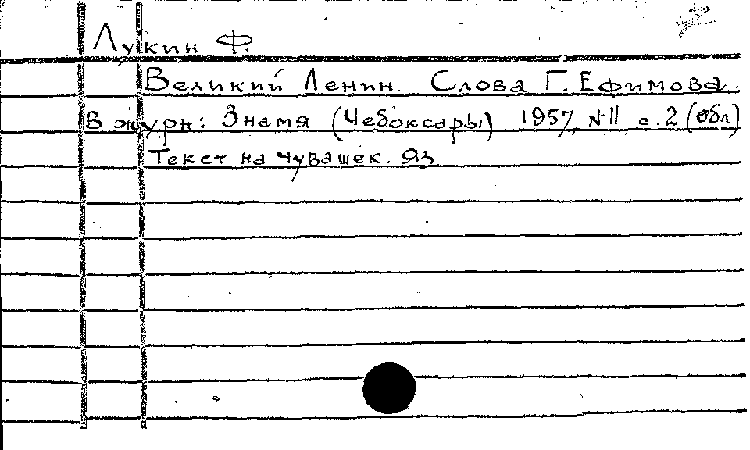 Лукин Ф.
Великий Ленин. Слова Г. Ефимова
В журн: Знамя (Чебоксары) 1957, №11 с. 2 (обл)
Текст на чувашск. яз